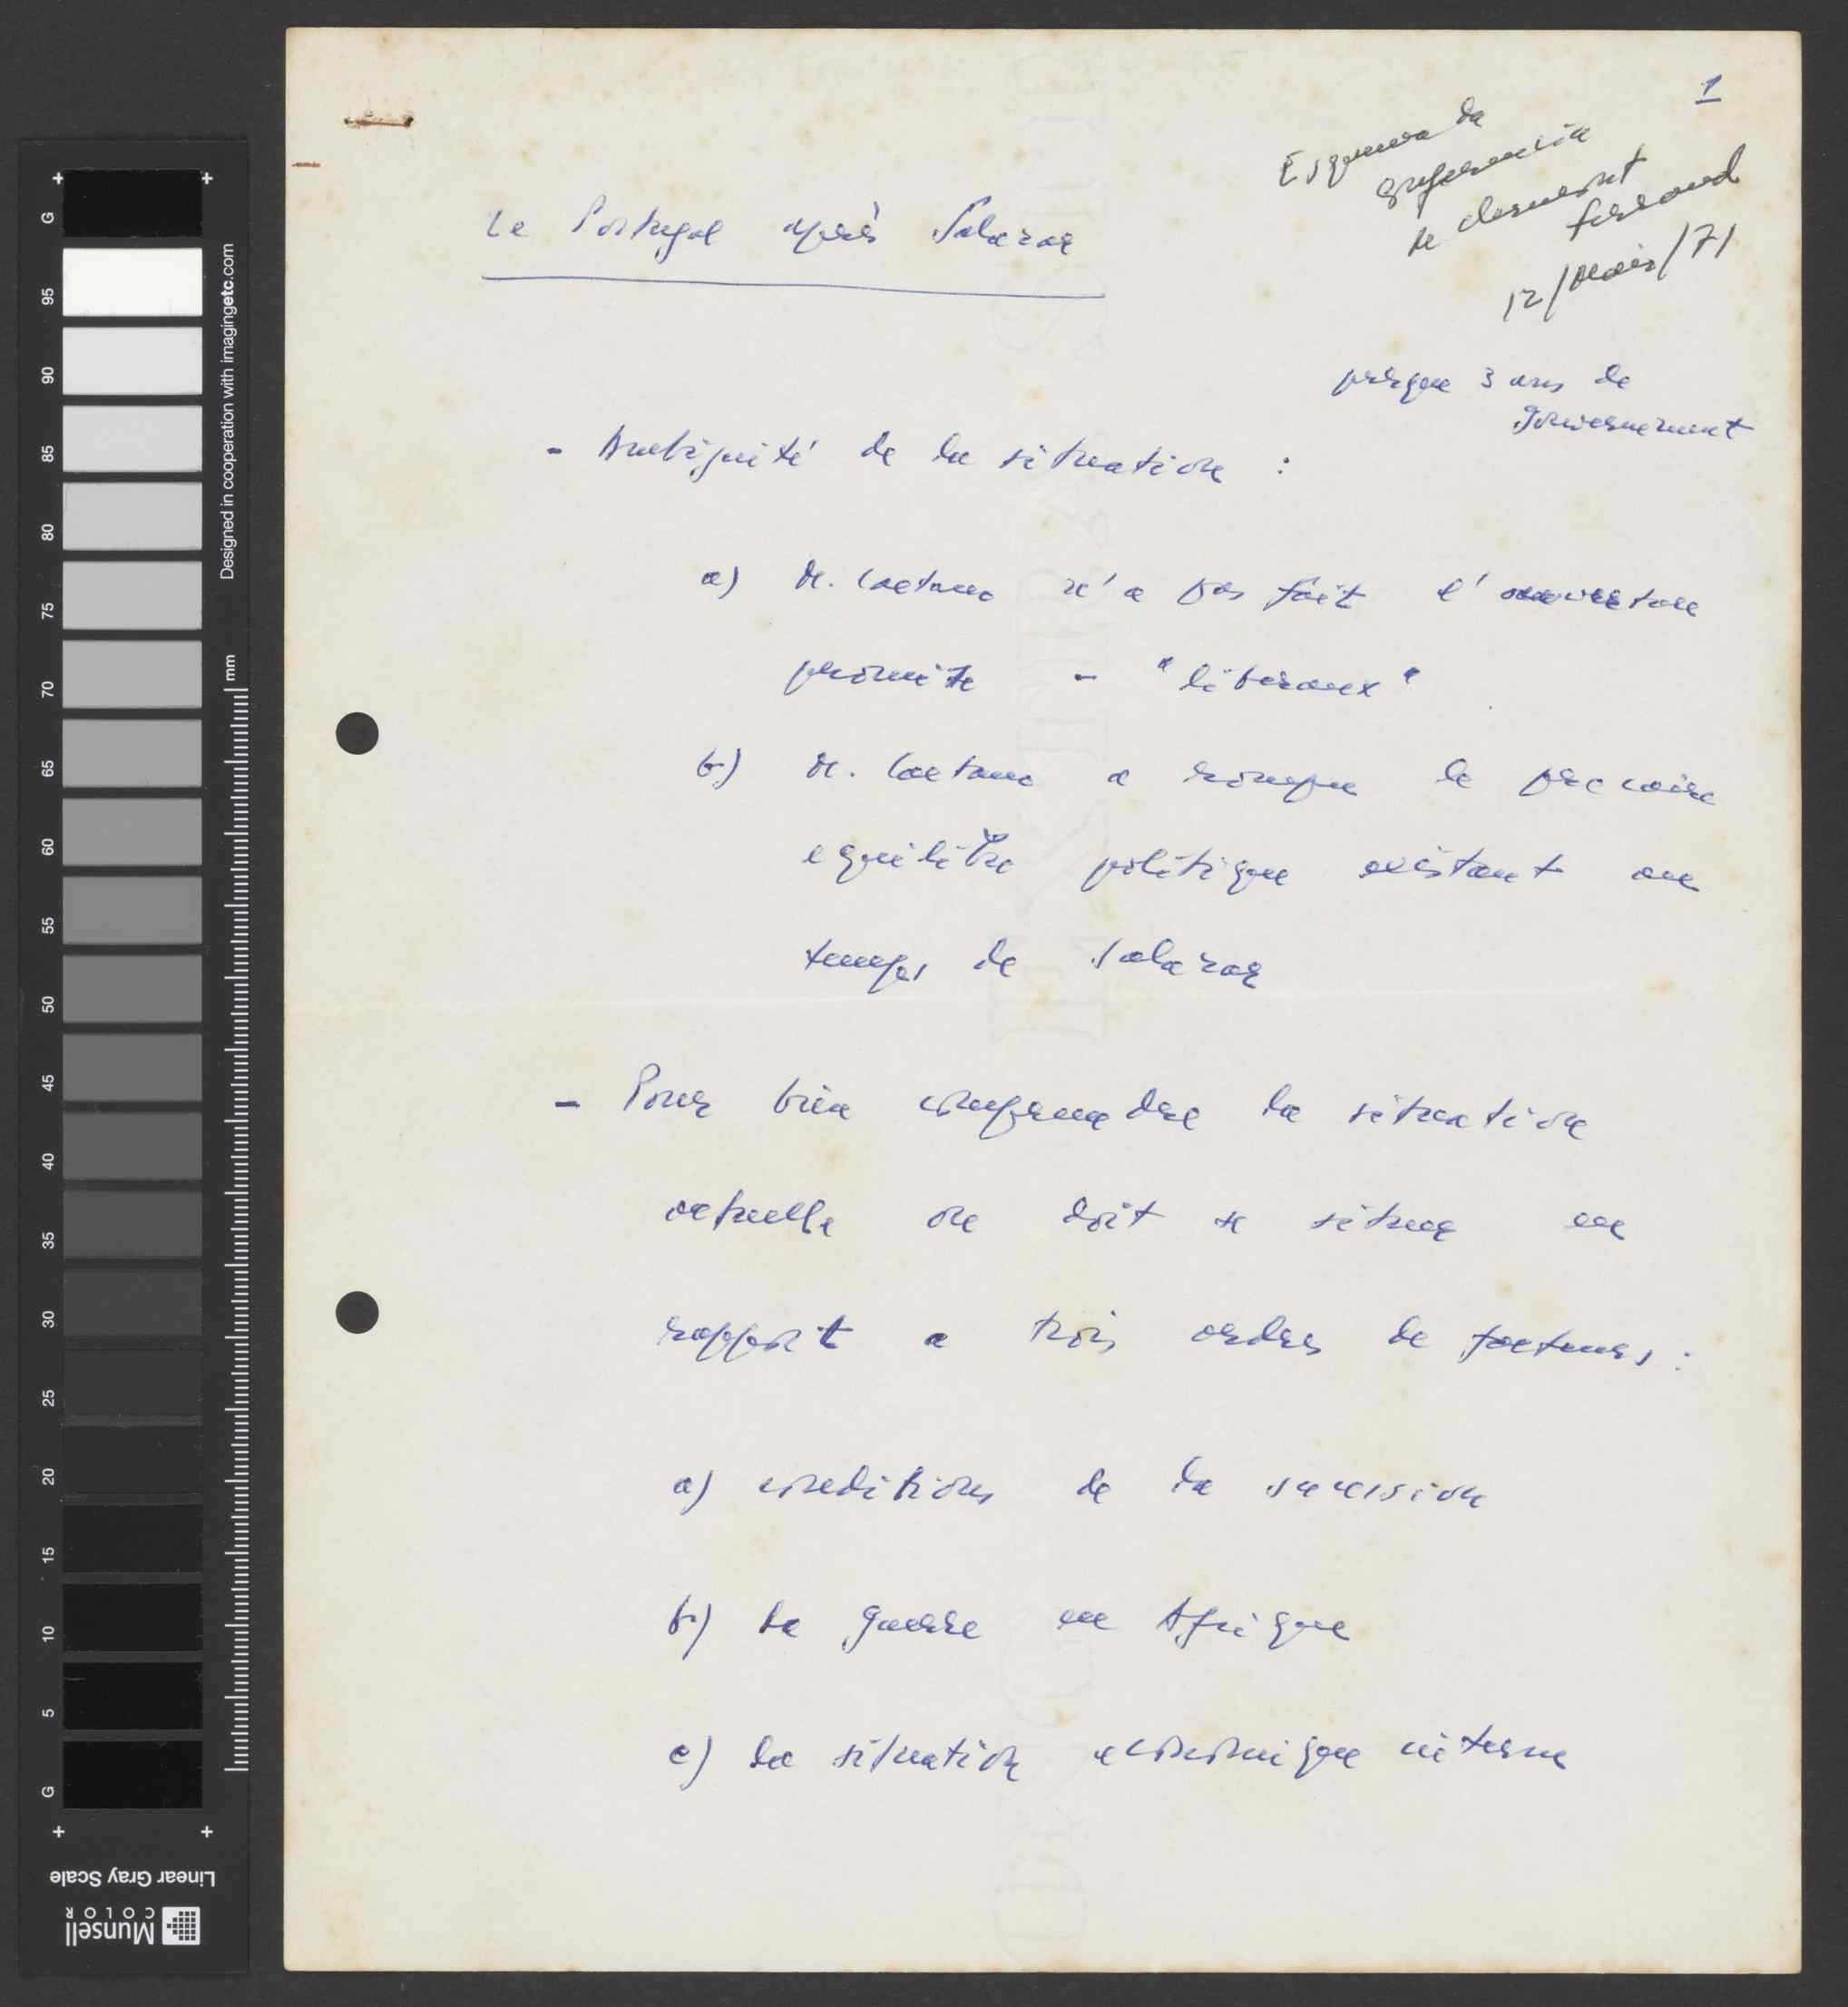 1
Esquema da
conferencia
de Clermont
Ferrand
12/Maio/71
Le Portugal après Salazar
presque 3 ans de
gouvernement
- Ambiguité de la situation :
a) M. Caetano n'a pas fait l'ouverture
promise - "liberaux"
b) M. Caetano a rompu le precaire
equilibre politique existant au
temps de Salazar
- Pour bien comprendre la situation
actuelle on doit se situer en
rapport a trois ordres de facteurs :
a) conditions de la sucession
b) la guerre en Afrique
c) la situation economique interne
G
95
90
85
80
75
70
65
60
55
50
45
40
35
30
25
20
15
10
5
G
Designed in cooperation with imagingetc.com
mm
Linear Gray Scale
Munsell
COLOR